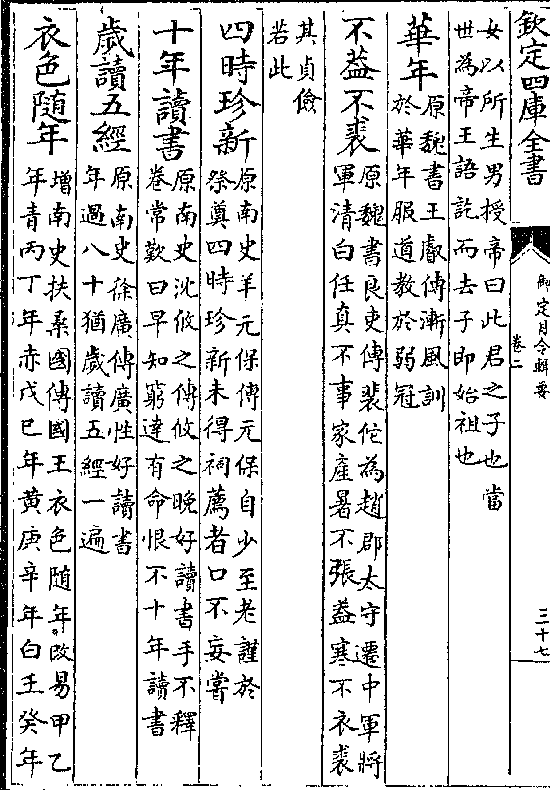 欽定四庫全書
御定月令輯要
卷二
三十七
女以所生男授帝曰此君之子也當
世為帝王語訖而去子即始祖也
華年
原魏書王叡傳漸風訓
於華年服道教於弱冠
不葢不裘
原魏書良吏傳裴佗為趙郡太守遷中軍將
軍清白任真不事家產暑不張葢寒不衣裘
其貞儉
若此
四時珍新
原南史羊元保傳元保自少至老謹於
祭奠四時珍新未得祠薦者口不妄嘗
十年讀書
原南史沈攸之傳攸之晚好讀書手不釋
卷常歎曰早知窮達有命恨不十年讀書
歲讀五經
原南史徐廣傳廣性好讀書
年過八十猶歲讀五經一遍
衣色随年
增南史扶桑國傳國王衣色随年改易甲乙
年青丙丁年赤戊巳年黄庚辛年白王癸年